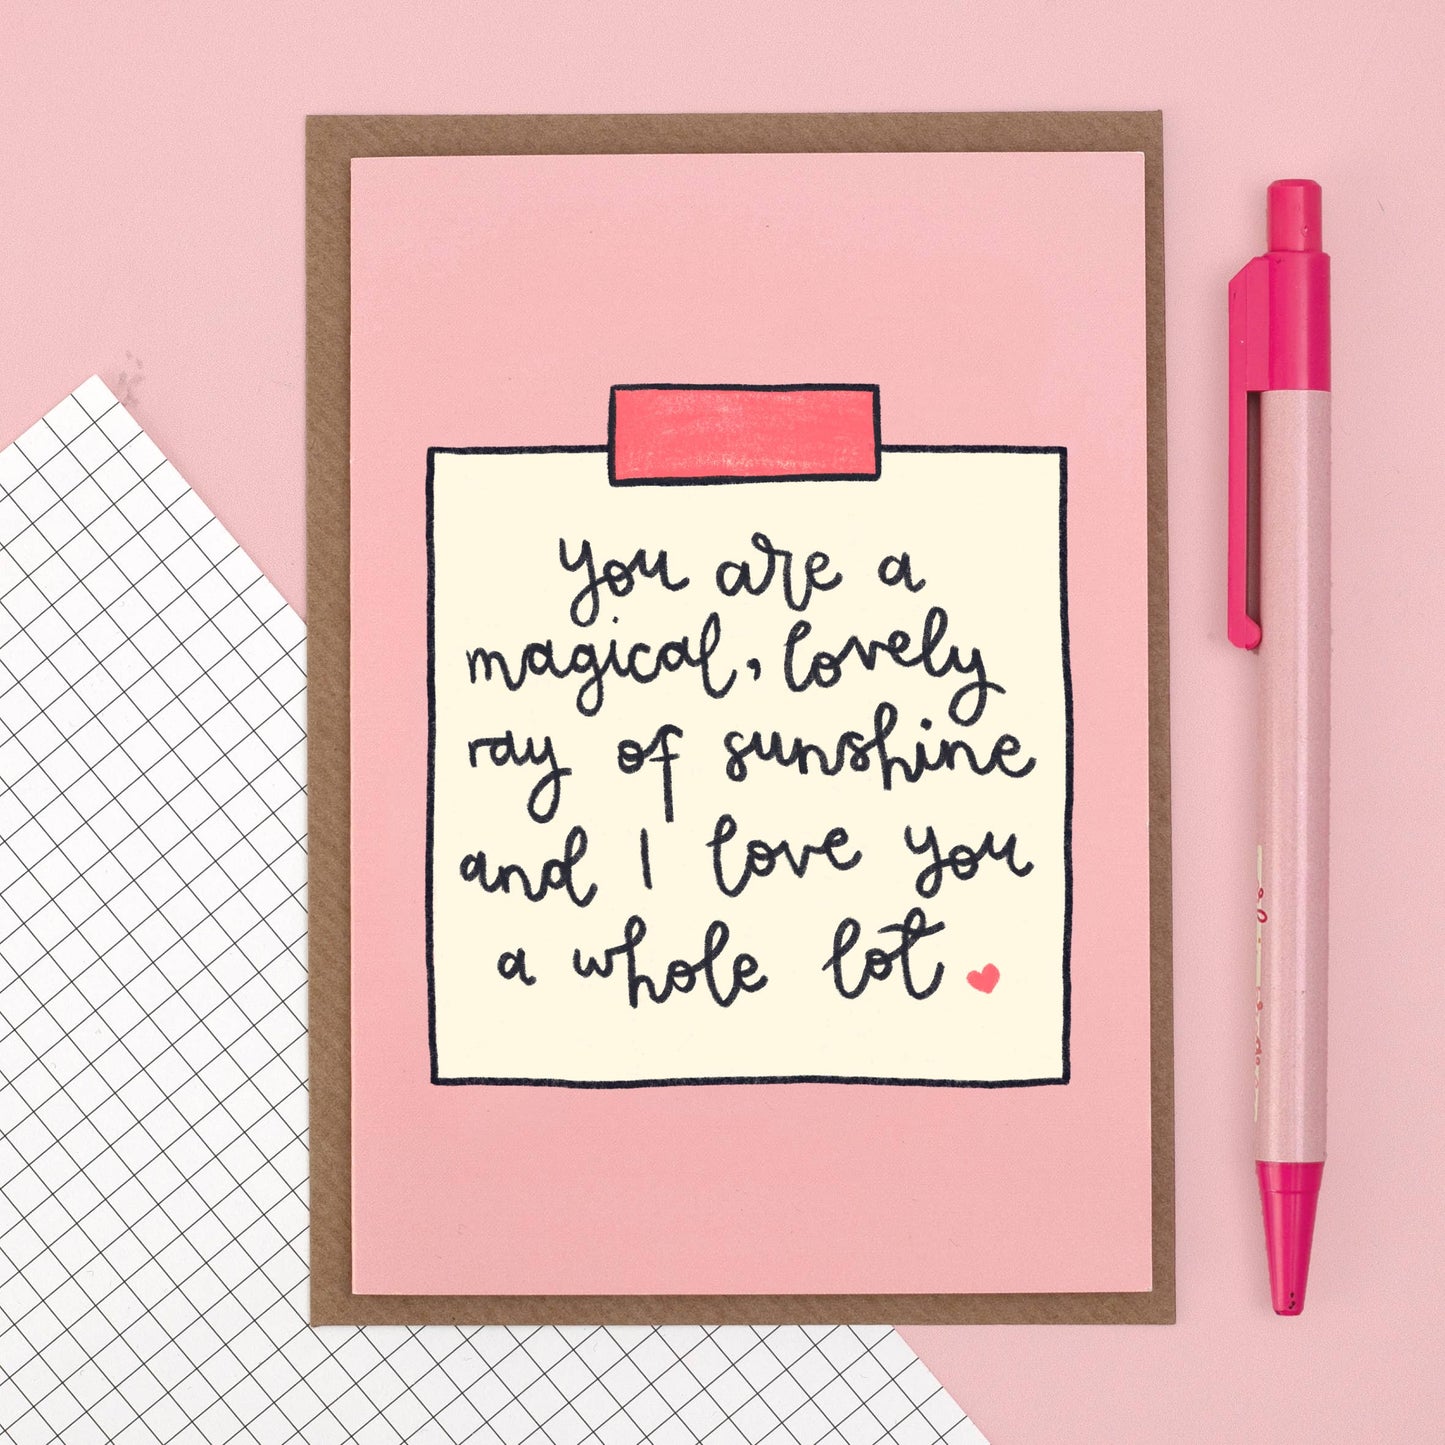 you are a
magical, lovely
ray of sunshine
and I love you
a whole lot.